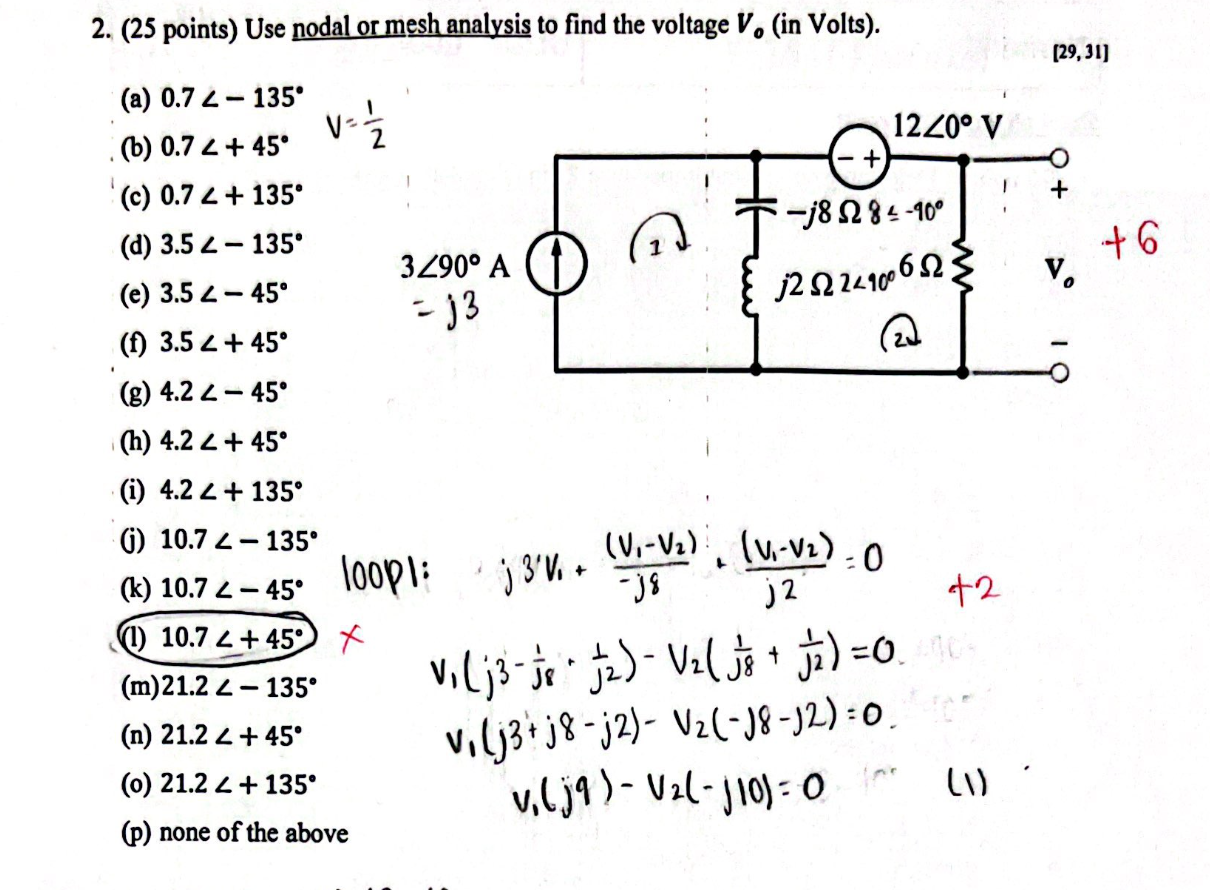 2. (25 points) Use nodal or mesh analysis to find the voltage Vₒ (in Volts).
[29, 31]
(a) 0.7 ∠ − 135°
(b) 0.7 ∠ + 45°
(c) 0.7 ∠ + 135°
(d) 3.5 ∠ − 135°
(e) 3.5 ∠ − 45°
(f) 3.5 ∠ + 45°
(g) 4.2 ∠ − 45°
(h) 4.2 ∠ + 45°
(i) 4.2 ∠ + 135°
(j) 10.7 ∠ − 135°
(k) 10.7 ∠ − 45°
(l) 10.7 ∠ + 45° ×
(m) 21.2 ∠ − 135°
(n) 21.2 ∠ + 45°
(o) 21.2 ∠ + 135°
(p) none of the above
V = 1/2
12∠0° V
− +
−j8 Ω 8∠-90°
+
3∠90° A
= j3
1
j2 Ω 2∠90°
6 Ω
Vₒ
+6
2
−
loop1: j3V₁ + (V₁-V₂)/-j8 + (V₁-V₂)/j2 = 0
+2
V₁(j3 - 1/j8 + 1/j2) - V₂(1/j8 + 1/j2) = 0
V₁(j3+j8-j2) - V₂(-j8-j2) = 0
V₁(j9) - V₂(-j10) = 0 (1)